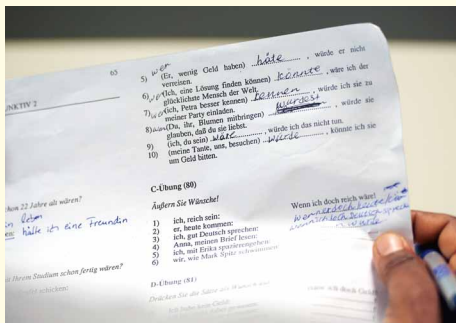 65
NKTIV 2
5) wer (Er, wenig Geld haben) häte, würde er nicht
verreisen.
6) (Ich, eine Lösung finden können) könnte, wäre ich der
glücklichste Mensch der Welt.
7) (Ich, Petra besser kennen) kennen, würde ich sie zu
meiner Party einladen.
8) (Du, ihr, Blumen mitbringen) würdest, würde sie
glauben, daß du sie liebst.
9) (ich, du sein) wäre, würde ich das nicht tun.
10) (meine Tante, uns, besuchen) würde, könnte ich sie
um Geld bitten.
C-Übung (80)
Äußern Sie Wünsche!
Wenn ich doch reich wäre!
1) ich, reich sein:
2) er, heute kommen:
3) ich, gut Deutsch sprechen:
4) Anna, meinen Brief lesen:
5) ich, mit Erika spazierengehen:
6) wir, wie Mark Spitz schwimmen
chon 22 Jahre alt wären?
hätte ich eine Freundin
Ihrem Studium schon fertig wären?
schicken:
D-Übung (81)
Drücken Sie die Sätze als Wunsch